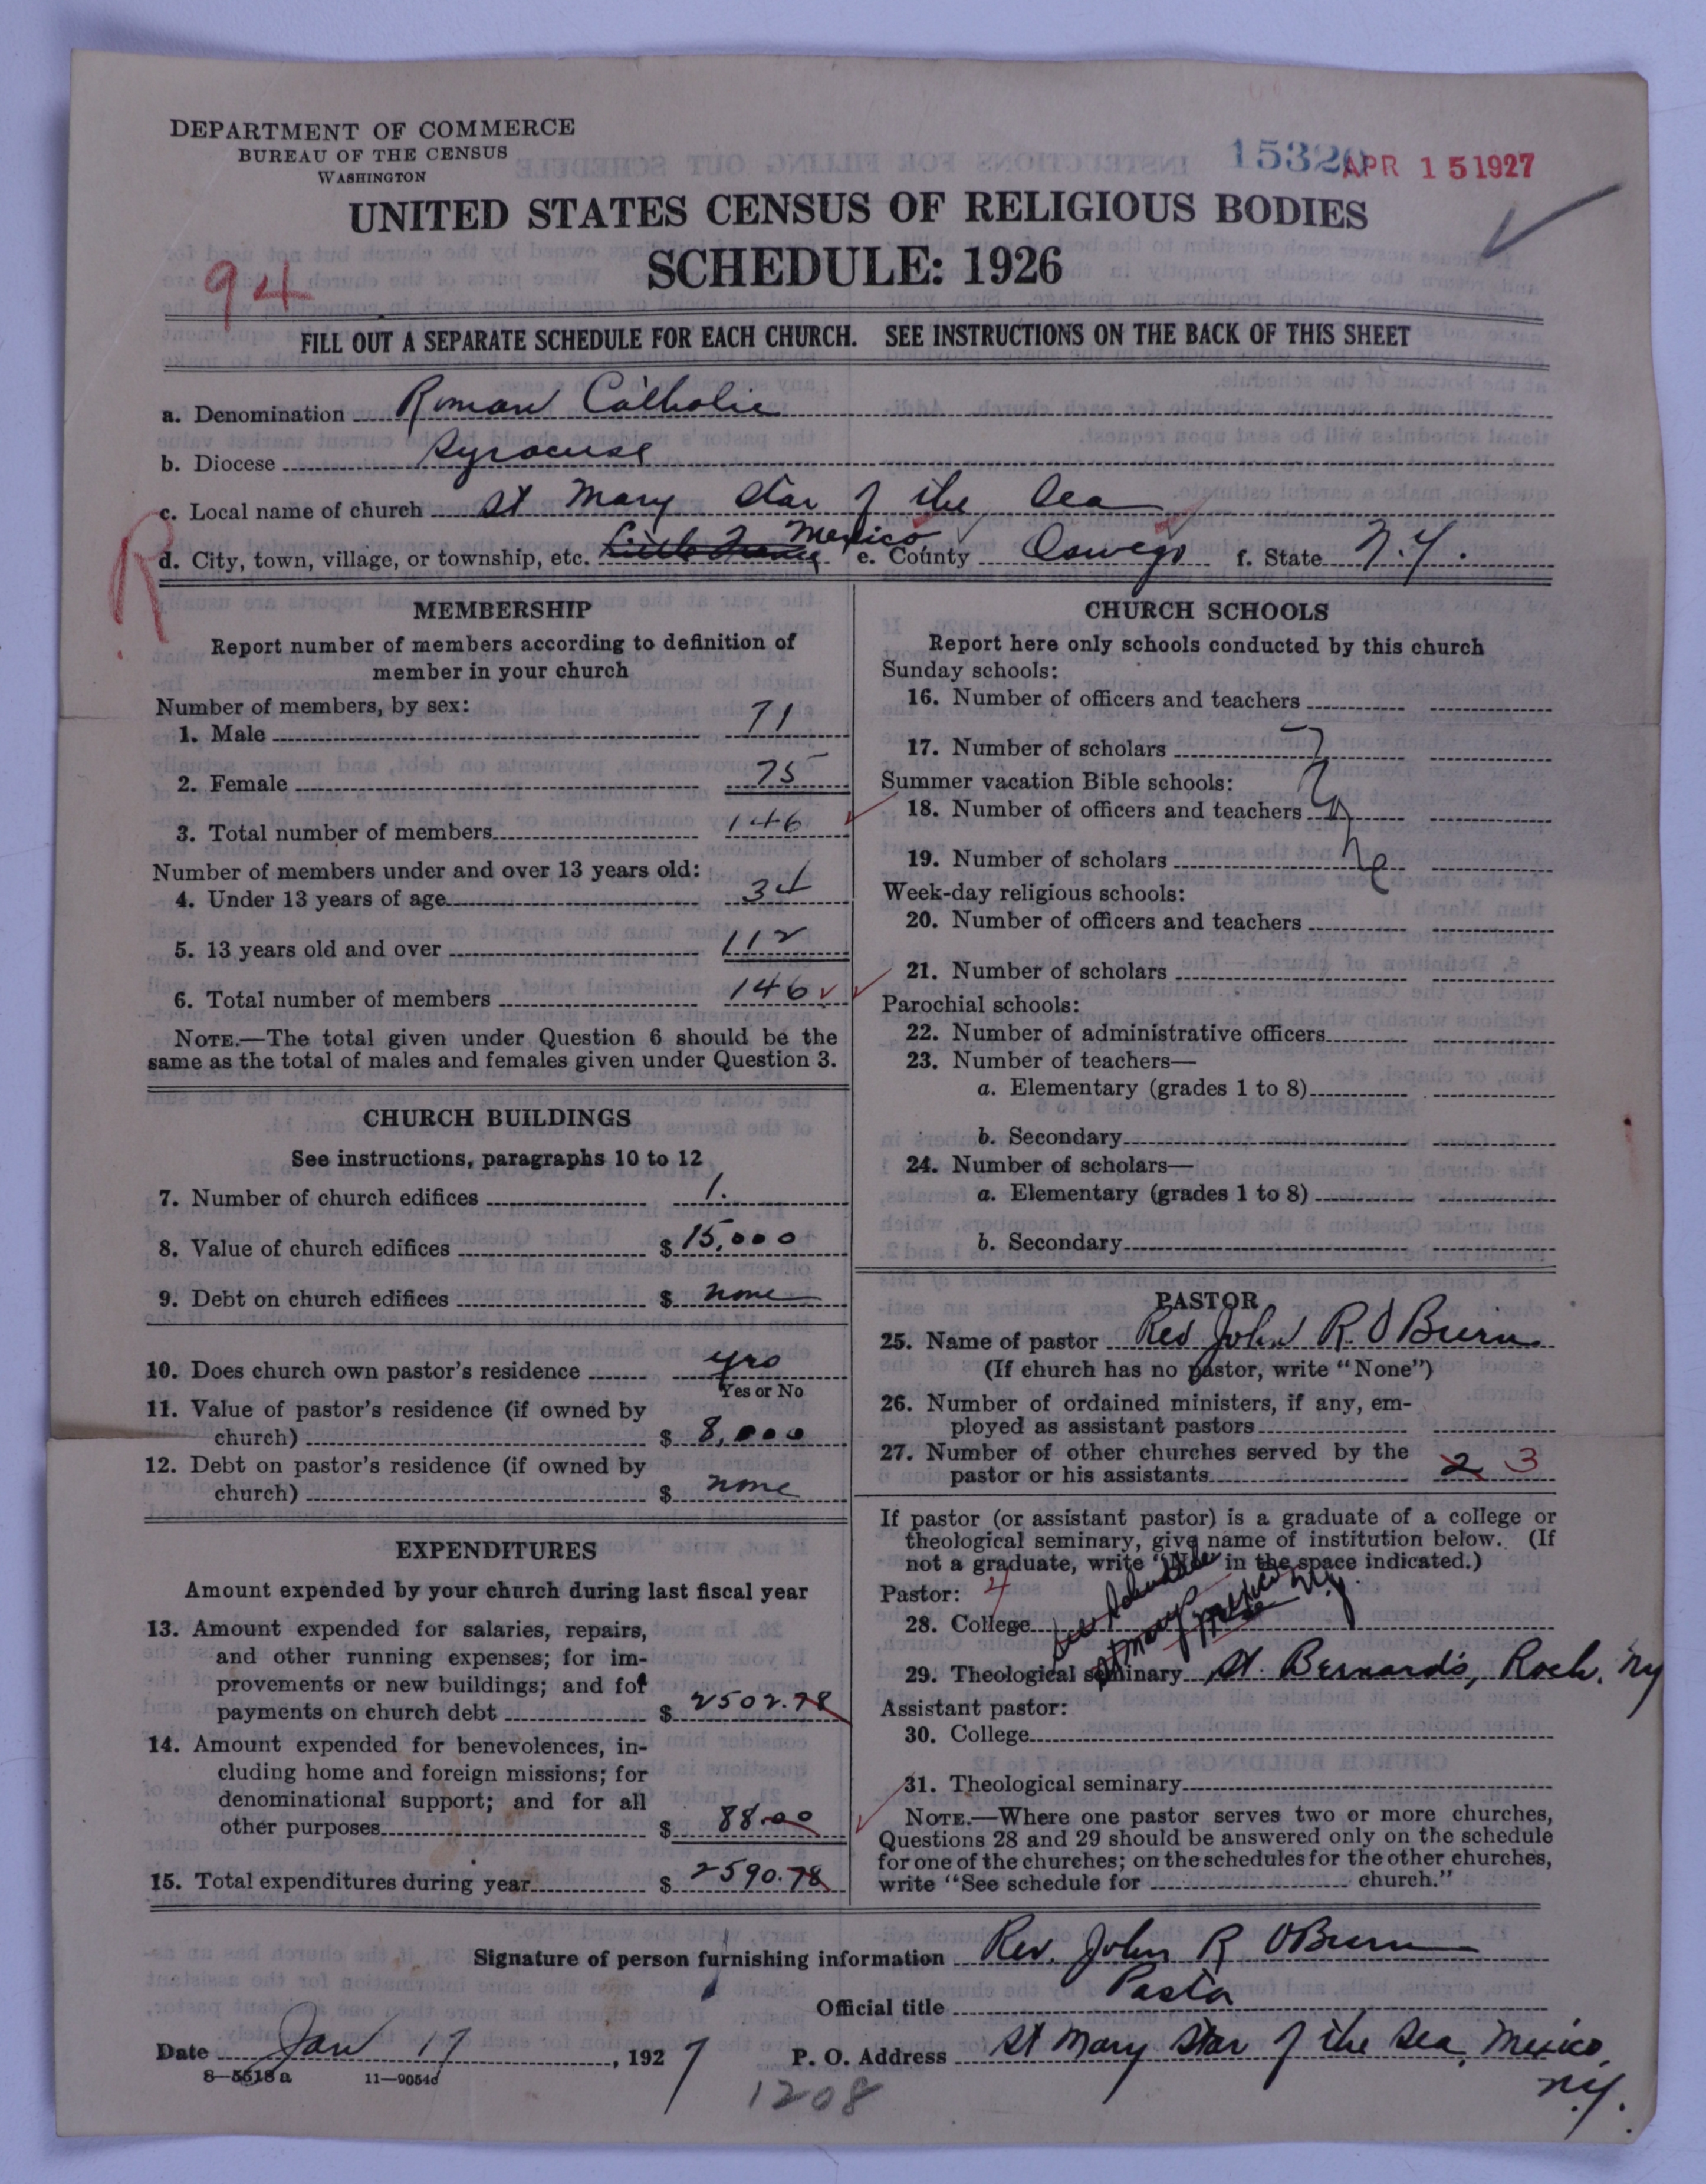 DEPARTMENT OF COMMERCE
BUREAU OF THE CENSUS
WASHINGTON
15320 APR 15 1927
UNITED STATES CENSUS OF RELIGIOUS BODIES
SCHEDULE: 1926
94
FILL OUT A SEPARATE SCHEDULE FOR EACH CHURCH. SEE INSTRUCTIONS ON THE BACK OF THIS SHEET
a. Denomination Roman Catholic
b. Diocese Syracuse
c. Local name of church St Mary Star of the Sea
R
d. City, town, village, or township, etc. Little France Mexico e. County Oswego f. State N.Y.
MEMBERSHIP
Report number of members according to definition of
member in your church
Number of members, by sex:
1. Male 71
2. Female 75
3. Total number of members 146
Number of members under and over 13 years old:
4. Under 13 years of age 34
5. 13 years old and over 112
6. Total number of members 146
NOTE.—The total given under Question 6 should be the
same as the total of males and females given under Question 3.
CHURCH BUILDINGS
See instructions, paragraphs 10 to 12
7. Number of church edifices 1.
8. Value of church edifices $ 15,000
9. Debt on church edifices $ none
10. Does church own pastor's residence yes
Yes or No
11. Value of pastor's residence (if owned by
church) $ 8,000
12. Debt on pastor's residence (if owned by
church) $ none
EXPENDITURES
Amount expended by your church during last fiscal year
13. Amount expended for salaries, repairs,
and other running expenses; for im-
provements or new buildings; and for
payments on church debt $ 2502.78
14. Amount expended for benevolences, in-
cluding home and foreign missions; for
denominational support; and for all
other purposes $ 88.00
15. Total expenditures during year $ 2590.78
CHURCH SCHOOLS
Report here only schools conducted by this church
Sunday schools:
16. Number of officers and teachers
17. Number of scholars
Summer vacation Bible schools:
18. Number of officers and teachers
19. Number of scholars
Week-day religious schools:
20. Number of officers and teachers
21. Number of scholars
Parochial schools:
22. Number of administrative officers
23. Number of teachers—
a. Elementary (grades 1 to 8)
b. Secondary
24. Number of scholars—
a. Elementary (grades 1 to 8)
b. Secondary
PASTOR
25. Name of pastor Rev John R. O'Beirn
(If church has no pastor, write "None")
26. Number of ordained ministers, if any, em-
ployed as assistant pastors
27. Number of other churches served by the
pastor or his assistants 2 3
If pastor (or assistant pastor) is a graduate of a college or
theological seminary, give name of institution below. (If
not a graduate, write "No" in the space indicated.)
Pastor:
28. College See Schedule
St Marys Mexico N.Y.
29. Theological seminary St. Bernard's, Roch. N.Y
Assistant pastor:
30. College
31. Theological seminary
NOTE.—Where one pastor serves two or more churches,
Questions 28 and 29 should be answered only on the schedule
for one of the churches; on the schedules for the other churches,
write "See schedule for church."
Signature of person furnishing information Rev. John R O'Beirn
Official title Pastor
Date Jan 17, 1927 P. O. Address St Mary Star of the Sea, Mexico,
N.Y.
8—5518a 11—9054d
1208